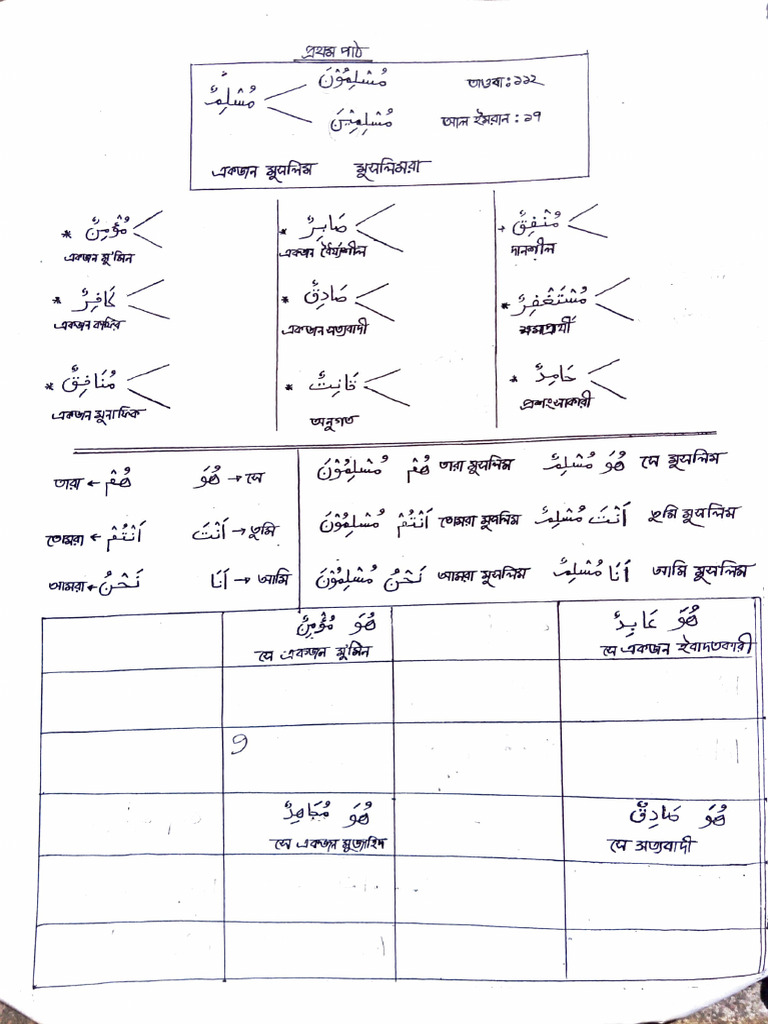 প্রথম পাঠ
مُسْلِمٌ مُسْلِمُوْنَ তাওবা: ১১২
مُسْلِمِيْنَ আল ইমরান: ১৭
একজন মুসলিম মুসলিমরা
* مُؤْمِنٌ * صَابِرٌ * مُنْفِقٌ
একজন মু'মিন একজন ধৈর্য্যশীল দানশীল
* كَافِرٌ * صَادِقٌ * مُسْتَغْفِرٌ
একজন কাফির একজন সত্যবাদী ক্ষমাপ্রার্থী
* مُنَافِقٌ * قَانِتٌ * حَامِدٌ
একজন মুনাফিক অনুগত প্রশংসাকারী
তারা ← هُمْ هُوَ → সে
তোমরা ← اَنْتُمْ اَنْتَ → তুমি
আমরা ← نَحْنُ اَنَا → আমি
هُمْ مُسْلِمُوْنَ তারা মুসলিম هُوَ مُسْلِمٌ সে মুসলিম
اَنْتُمْ مُسْلِمُوْنَ তোমরা মুসলিম اَنْتَ مُسْلِمٌ তুমি মুসলিম
نَحْنُ مُسْلِمُوْنَ আমরা মুসলিম اَنَا مُسْلِمٌ আমি মুসলিম
هُوَ مُؤْمِنٌ
সে একজন মু'মিন
هُوَ عَابِدٌ
সে একজন ইবাদতকারী
هُوَ مُجَاهِدٌ
সে একজন মুজাহিদ
هُوَ صَادِقٌ
সে সত্যবাদী